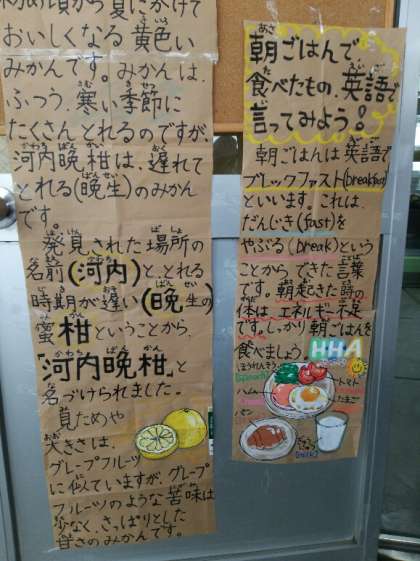 初め頃から夏にかけて
おいしくなる黄色い
みかんです。みかんは、
ふつう、寒い季節に
たくさんとれるのですが、
河内晩柑は、遅れて
とれる(晩生)のみかん
です。
発見された場所の
名前(河内)と、とれる
時期が遅い(晩生の
蜜柑)ということから、
「河内晩柑」と
名づけられました。
見ためや
大きさは、
グレープフルーツ
に似ていますが、グレープ
フルーツのような苦味は
少なく、さっぱりとした
甘さのみかんです。
朝ごはんで
食べたもの、英語で
言ってみよう!
朝ごはんは英語で
ブレックファスト(breakfast)
といいます。これは、
だんじき(fast)を
やぶる(break)という
ことからできた言葉
です。朝起きた時の
体はエネルギー不足
です。しっかり朝ごはんを
食べましょう。
HHA
ほうれんそう
(spinach)
トマト
ハム
たまご
パン
(milk)